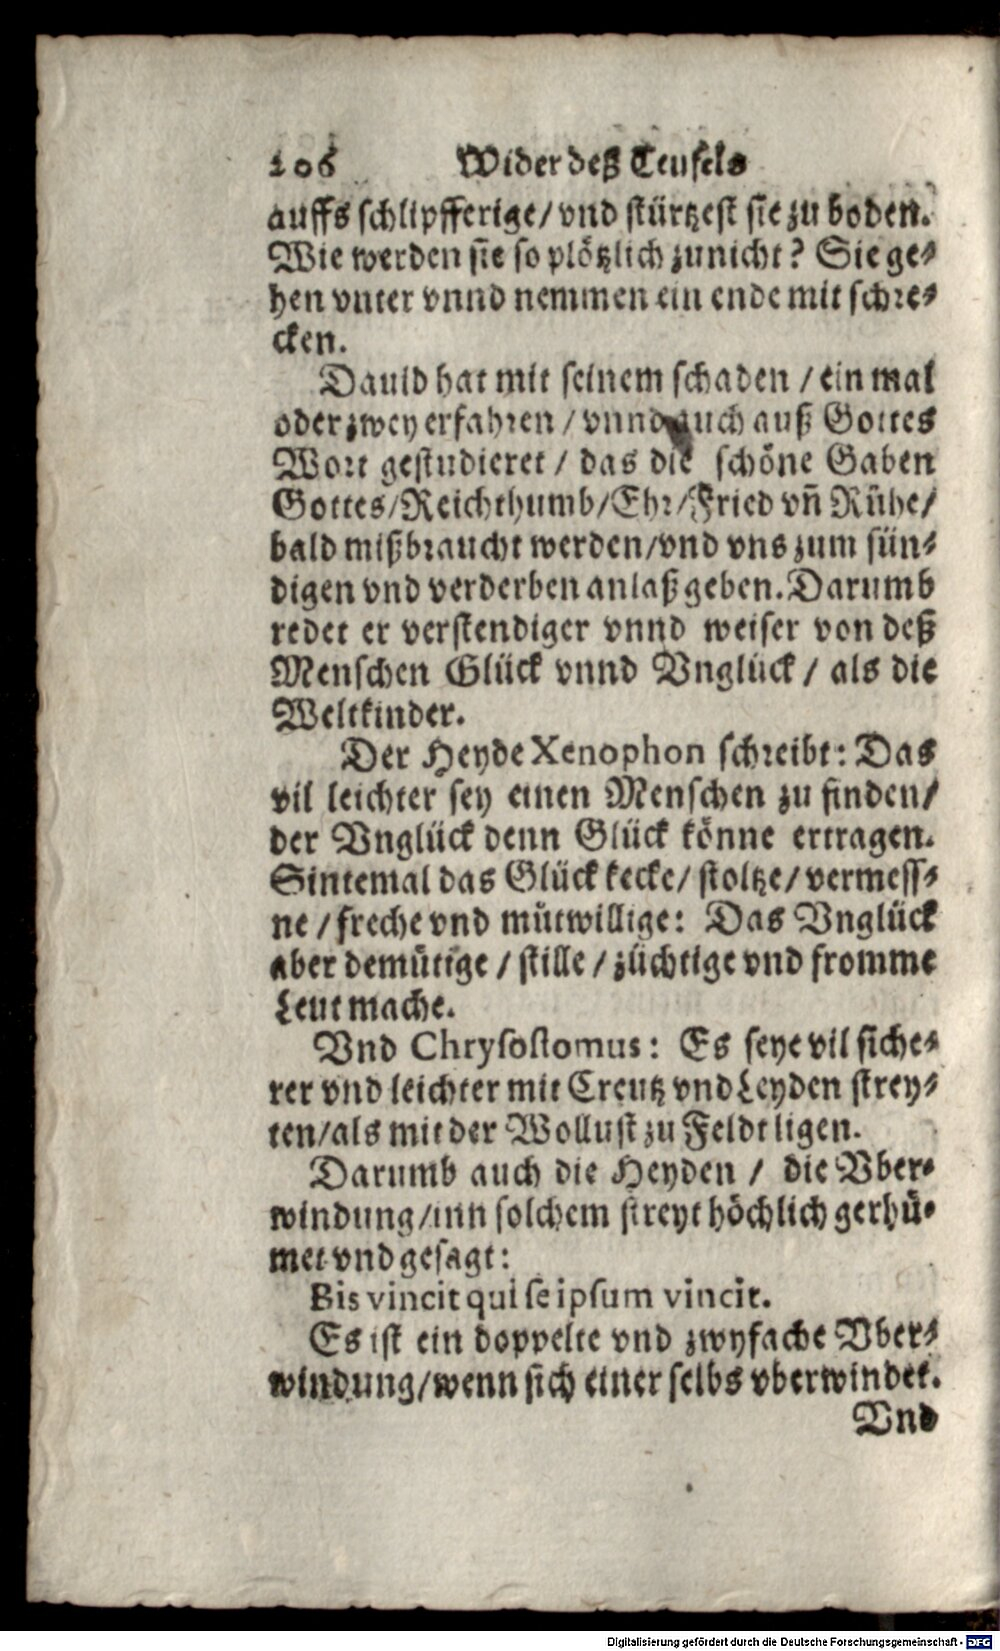 206 Wider deß Teufels
auffs schlipfferige/ vnd stürtzest sie zu boden.
Wie werden sie so plötzlich zunicht? Sie ge-
hen vnter vnnd nemmen ein ende mit schre-
cken.
Dauid hat mit seinem schaden / ein mal
oder zwey erfahren / vnnd auch auß Gottes
Wort gestudieret / das die schöne Gaben
Gottes/Reichthumb/Ehr/Fried vñ Rühe/
bald mißbraucht werden/vnd vns zum sün-
digen vnd verderben anlaß geben. Darumb
redet er verstendiger vnnd weiser von deß
Menschen Glück vnnd Vnglück / als die
Weltkinder.
Der Heyde Xenophon schreibt: Das
vil leichter sey einen Menschen zu finden/
der Vnglück denn Glück könne ertragen.
Sintemal das Glück kecke/ stoltze/ vermess-
ne / freche vnd mütwillige: Das Vnglück
aber demütige / stille / züchtige vnd fromme
Leut mache.
Vnd Chrysostomus: Es seye vil siche-
rer vnd leichter mit Creutz vnd Leyden strey-
ten/als mit der Wollust zu Feldt ligen.
Darumb auch die Heyden / die Vber-
windung/inn solchem streyt höchlich gerhü-
met vnd gesagt:
Bis vincit qui se ipsum vincit.
Es ist ein doppelte vnd zwyfache Vber-
windung/wenn sich einer selbs vberwindet.
Vnd
Digitalisierung gefördert durch die Deutsche Forschungsgemeinschaft - DFG